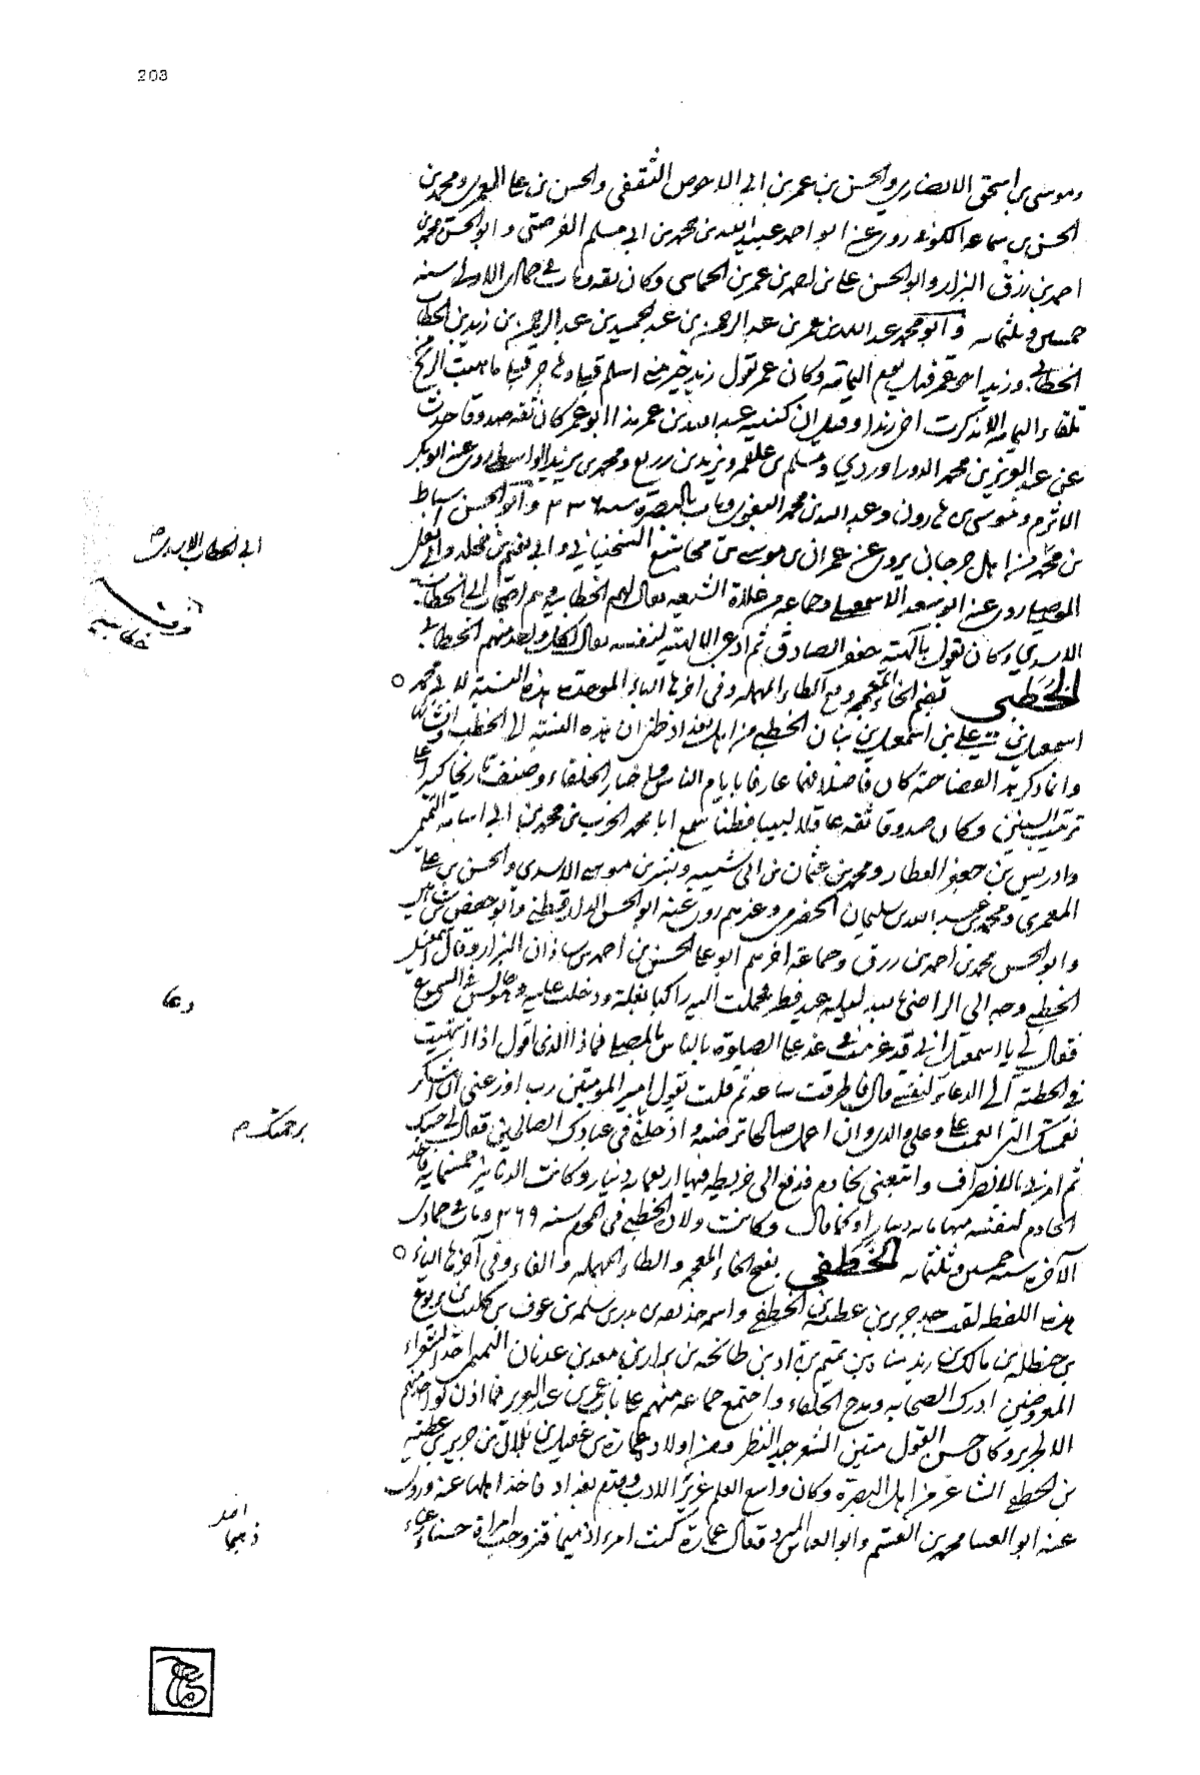 203
وموسى بن اسحق الانصاري والحسن بن عمر بن ابي الاحوص الثقفي والحسن بن على المعمري ومحمد بن
الحسن بن سماعه الكوفي روى عنه ابو احمد عبيد الله بن محمد بن ابي مسلم الفرضي وابو الحسن محمد بن
احمد بن رزق البزاز وابو الحسن على بن احمد بن عمر بن الحمامى وكان ثقه ومات في جمادى الاولى سنه
خمسين وثلثمائه وابو محمد عبد الله بن عمر بن عبد الرحمن بن عبد الحميد بن عبد الرحمن بن زيد بن الخطاب
الخطابي وزيد اخو عمر قتل يوم اليمامه وكان عمر يقول زيد خير مني اسلم قبلي وهاجر قبلي ما هبت الريح
تلقاء اليمامه الا ذكرت اخي زيدا وقيل ان كنيه عبد الله بن عمر هذا ابو عمر كان ثقه صدوقا حدث
عن عبد العزيز بن محمد الدراوردي ومسلم بن علقمه ويزيد بن زريع ومحمد بن يزيد الواسطي روى عنه ابو بكر
الاثرم وموسى بن هارون وعبد الله بن محمد البغوي ومات بالبصره سنه ٢٣٦ وابو الحسن
بن محمد من اهل جرجان يروي عن عمران بن موسى بن مجاشع السختياني وابي نعيم بن عدي وابي يعلى
الموصلي روى عنه ابو سعد الاسمعيلي وجماعه من غلاة الشيعه يقال لهم الخطابيه وهم اصحاب ابي الخطاب
الاسدي وكان يقول بالهيه جعفر الصادق ثم ادعى الالهيه لنفسه يقال لكل واحد منهم الخطابي
الخُطَبي بضم الخاء المعجمه وفتح الطاء المهمله وفى اخرها الباء الموحده هذه النسبه لابي محمد
اسمعيل بن علي بن اسمعيل بن بنان الخطبي من اهل بغداد ظن ان هذه النسبه الى الخطب وانشائها
وانما ذكر بها لفصاحته كان فاضلا فهما عارفا بايام الناس واخبار الخلفاء وصنف تاريخا كبيرا على
ترتيب السنين وكان صدوقا ثقه عاقلا لبيبا فطنا سمع ابا محمد الحرث بن محمد بن ابي اسامه التميمي
وادريس بن جعفر العطار ومحمد بن عثمان بن ابى شيبه وبشر بن موسى الاسدى والحسن بن على
المعمري ومحمد بن عبد الله بن سليمان الحضرمي وغيرهم روى عنه ابو الحسن الدارقطني وابو حفص بن شاهين
وابو الحسن محمد بن احمد بن رزق وجماعه اخرهم ابو على الحسن بن احمد بن شاذان البزاز وقال اسمعيل
الخطبي وجه الى الراضى بالله ليله عيد فطر فحملت اليه راكبا بغلة ودخلت عليه وهو جالس في الشموع
فقال لي يا اسمعيل اني قد عزمت في غد على الصلوة بالناس بالمصلى فماذا الذى اقول اذا انتهيت
في الخطبه الى الدعاء لنفسي قال فاطرقت ساعه ثم قلت تقول امير المومنين رب اوزعنى ان اشكر
نعمتك التي انعمت على وعلى والدي وان اعمل صالحا ترضيه وادخلني في عبادك الصالحين فقال لي حسبك
ثم امرني بالانصراف واتبعني بخادم فدفع الى خريطه فيها اربعمايه دينار وكانت الدنانير خمسمايه فاخذ
الخادم لنفسه منها مايه دينار او كما قال وكانت ولادة الخطبي في المحرم سنه ٢٦٩ ومات في جمادى
الآخره سنه خمسين وثلثمائه الخَطَفي بفتح الخاء المعجمه والطاء المهمله والفاء وفى آخرها الياء
هذه اللفظه لقب جد جرير بن عطيه بن الخطفي واسمه حذيفه بن بدر بن سلمه بن عوف بن كليب بن يربوع
بن حنظله بن مالك بن زيد مناه بن تميم بن مر بن اد بن طابخه بن نزار بن معد بن عدنان التميمي احد الشعراء
المعروفين ادرك الصحابه ومدح الخلفاء واجتمع جماعه منهم على باب عمر بن عبد العزيز فما اذن لواحد منهم
الا لجرير وكان حسن القول متين الشعر جيد النظر ومن اولاده عمارة بن عقيل بن بلال بن جرير بن عطيه
بن الخطفي الشاعر من اهل البصره وكان واسع العلم غزير الادب وقدم بغداد فاخذ اهلها عنه وروى
عنه ابو العيناء محمد بن القسم وابو العباس المبرد فقال عمارة كنت امرءا دميما فتزوجت امراة حسناء
ابي الخطاب الاسدي
وعلى
برحمتك م